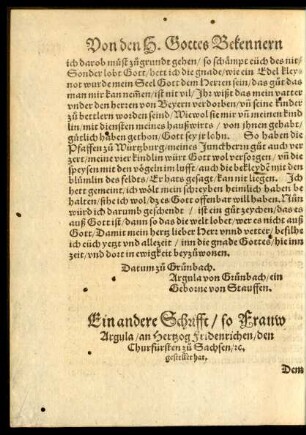 Von den H. Gottes Bekennern
ich darob müst zůgrundt gehen / so schämpt eüch des nit /
Sonder lobt Gott / hett ich die gnade / wie ein Edel kley-
not wurde mein Seel Gott dem Herren sein / das gůt das
man mir kan nemen / ist nit vil / Jhr wißt das mein vatter
vnder den herren von Beyern verdorben / vñ seine kinder
zů bettlern worden seind / Wiewol sie mir vñ meinen kind
lin / mit diensten meines haußwirts / von jhnen gehabt /
gůtlich haben gethon / Gott sey jr lohn. So haben die
Pfaffen zů Würtzburg / meines Junckherrn gůt auch ver
zert / meine vier kindlin würt Gott wol versorgen / vñ die
speysen mit den vögeln im lufft / auch die bekleydẽ mit den
blůmlin des feldts / Er hats gesagt / kan nit liegen. Jch
hett gemeint / ich wölt mein schreyben heimlich haben be
halten / sihe ich wol / dz es Gott offenbar will haben. Nůn
würd ich darumb geschendt / ist ein gůt zeychen / das es
auß Gott ist / dann so das die welt lobet / wer es nicht auß
Gott / Damit mein hertz lieber Herr vnnd vetter / befilhe
ich eüch yetzt vnd allezeit / inn die gnade Gottes / hie inn
zeit / vnd dort in ewigkeit beyzůwonen.
Datum zů Grůnbach.
Argula von Grůnbach / ein
Geborne von Stauffen.
Ein andere Schrifft / so Frauw
Argula / an Hertzog Fridenrichen / den
Churfürsten zů Sachsen / ꝛc.
gestellet hat.
Dem